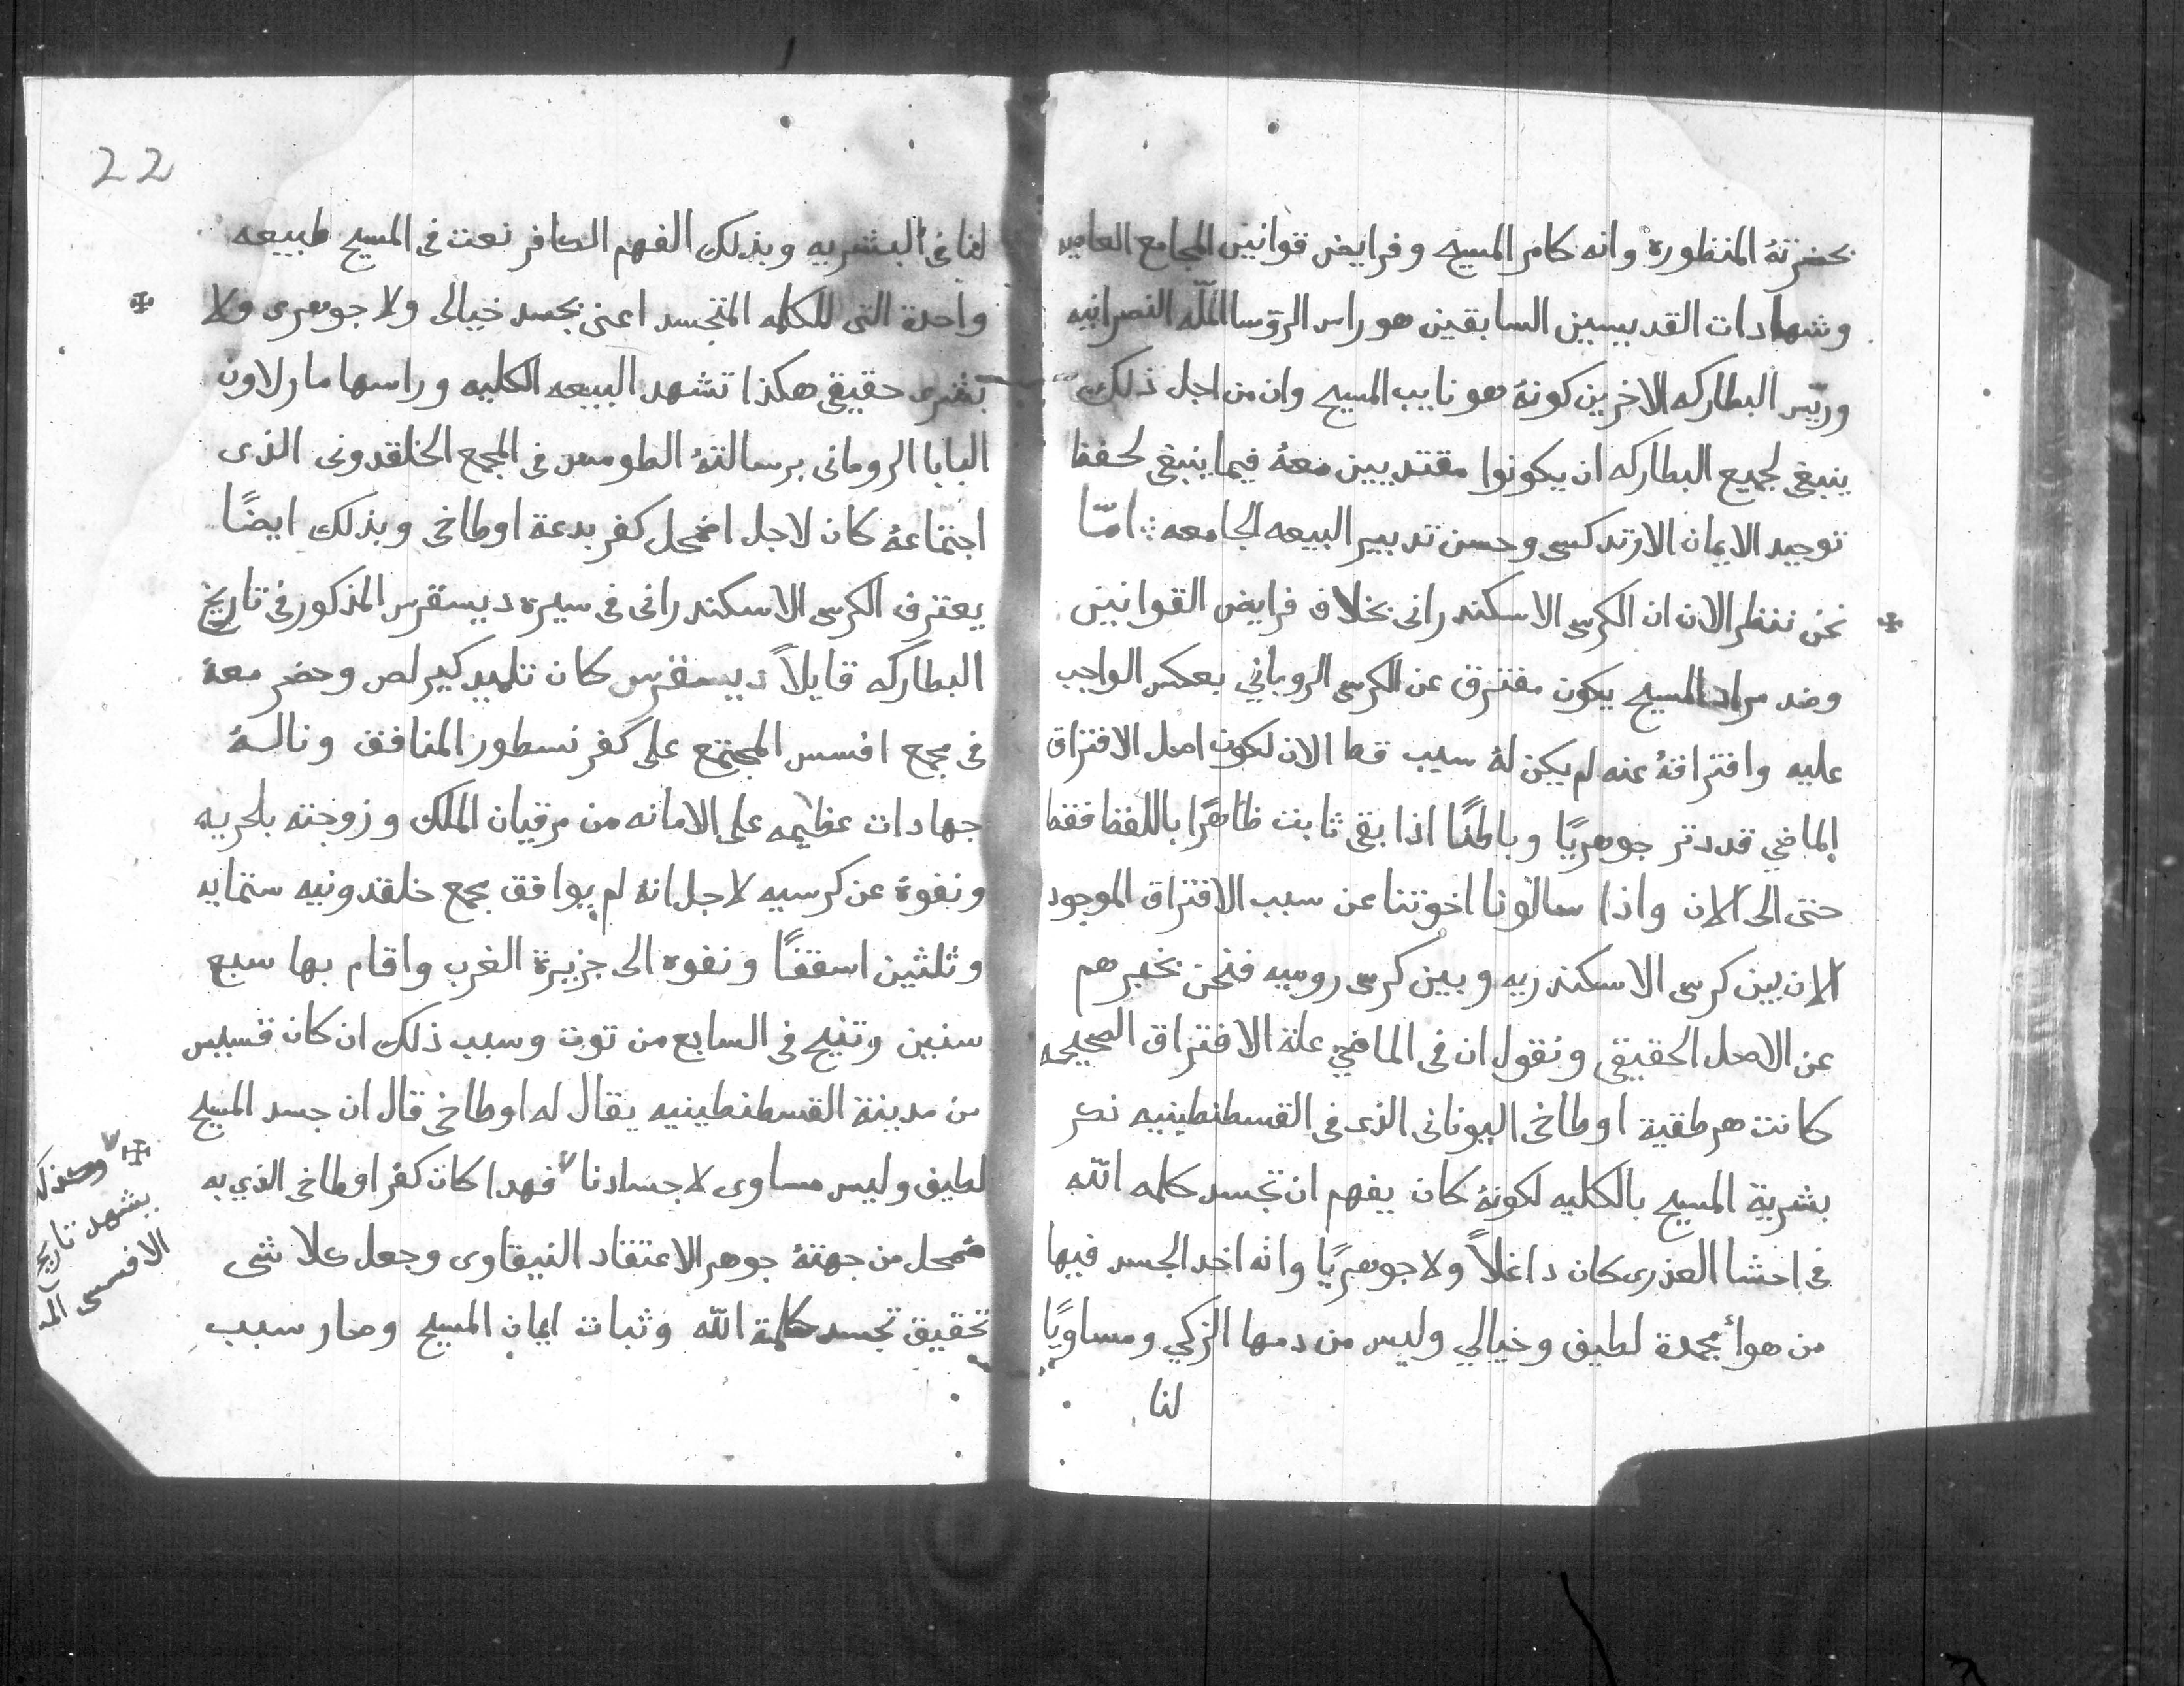 بحضرتهُ المنظوره وانه كامر المسيح وفرايض قوانين المجامع العاميه
وشهادات القديسيين السابقين هو راس الروسا الملّه النصرانيه
وريّس البطاركه الاخرين كونهُ هو نايب المسيح وان من اجل ذلك
ينبغي لجميع البطاركه ان يكونوا مقتدييين معهُ فيما ينبغي لحفظ
توحيد الايمان الارتدكسى وحسن تدبير البيعه الجامعه ∴ امّا
نحن ننظر الان ان الكرسى الاسكندرانى بخلاف فرايض القوانين
وضد مراد المسيح يكون مفترق عن الكرسى الروماني بعكس الواجب
عليه وافتراقهُ عنه لم يكن لهُ سبب قط الان لكون اصل الافتراق
الماضي قد دتر جوهريًا وباطنًا اذا بقى ثابت ظاهرًا باللفظ فقط
حتى الى الان واذا سالونا اخوتنا عن سبب الافتراق الموجود
الان بين كرسى الاسكندريه وبين كرسى روميه فنحن نخبرهم
عن الاصل الحقيقى ونقول ان فى الماضي علة الافتراق الصحيحه
كانت هرطقية اوطاخى اليونانى الذى فى القسطنطينيه نكر
بشرية المسيح بالكليه لكونهُ كان يفهم ان تجسد كلمه الله
فى احشا العذرى كان داغلاً ولا جوهريًا وانه اخد الجسد فيها
من هوأ مجمدة لطيف وخيالي وليس من دمها الزكي ومساويًا
لنا
22
لنا فى البشريه وبذلك الفهم الكافر نعت فى المسيح طبيعه
واحدة التى للكلمه المتجسد اعنى بجسد خيالى ولا جوهرى ولا
بشرى حقيقى هكذا تشهد البيعه الكليه وراسها مار لاون
البابا الرومانى برسالتهُ الطومس فى المجمع الخلقدونى الذى
اجتماعهُ كان لاجل اضمحل كفر بدعة اوطاخى وبذلك ايضًا
يعترف الكرسى الاسكندرانى فى سيرة ديسقرس المذكور فى تاريخ
البطاركه قايلاً ديسقرس كان تلميد كيرلص وحضر معهُ
فى مجمع افسس المجتمع على كفر نسطور المنافق ونالهُ
جهادات عظيمه على الامانه من مرقيان الملك وزوجته بلحريه
ونفوهُ عن كرسيه لاجل انهُ لم يوافق مجمع خلقدونيه ستمايه
وثلثين اسقفًا ونفوه الى جزيرة الغرب واقام بها سبع
سنين وتنيح فى السابع من توت وسبب ذلك ان كان قسيس
من مدينة القسطنطينيه يقال له اوطاخى قال ان جسد المسيح
لطيف وليس مساوى لاجسادنا ٧ فهدا كان كفر اوطاخى الذي به
ضمحل من جهتهُ جوهر الاعتقاد النيقاوى وجعل كلا شى
تحقيق تجسد كلمة الله وثبات ايمان المسيح وصار سبب
٧ وكذلك
يشهد تاريخ
الافسسى